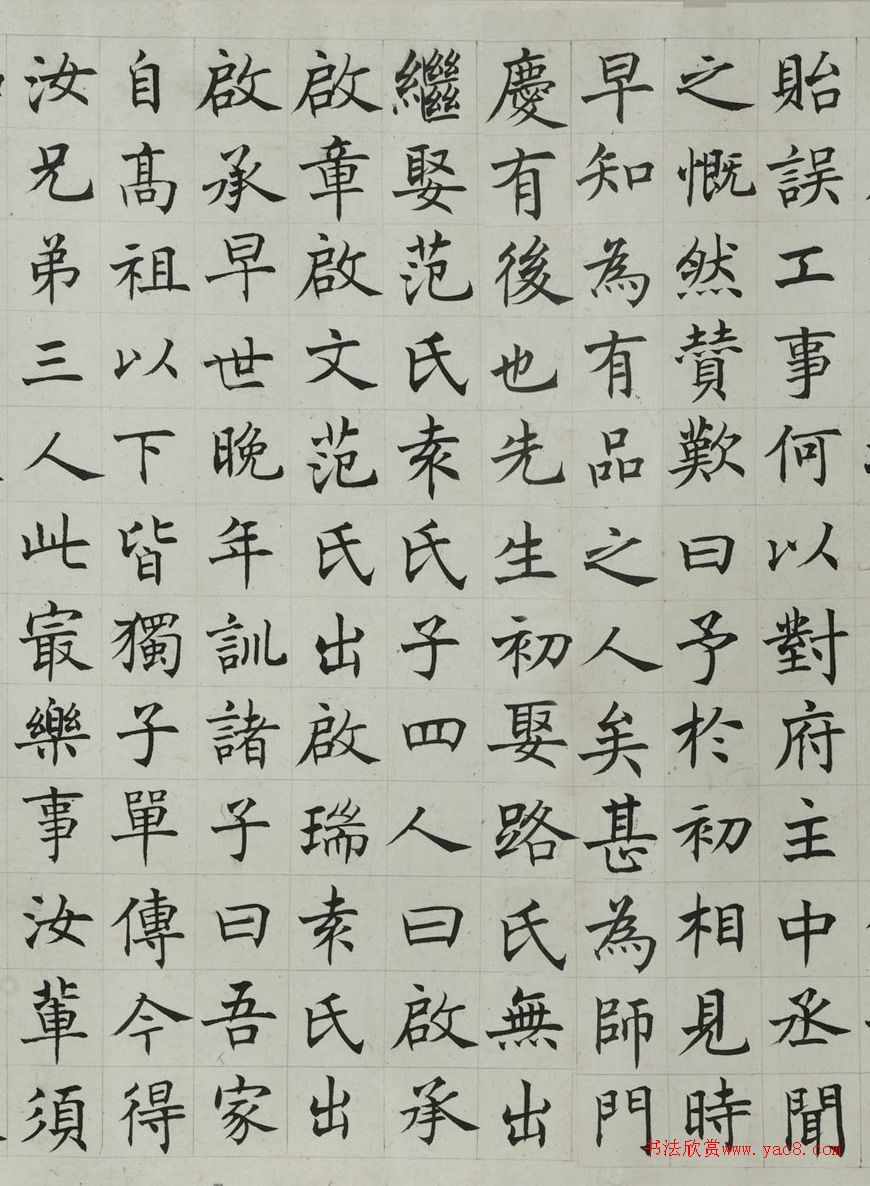 貽誤工事何以對府主中丞聞
之慨然贊歎曰予於初相見時
早知為有品之人矣甚為師門
慶有後也先生初娶路氏無出
繼娶范氏袁氏子四人曰啟承
啟章啟文范氏出啟瑞袁氏出
啟承早世晚年訓諸子曰吾家
自高祖以下皆獨子單傳今得
汝兄弟三人此冣樂事汝輩須
书法欣赏www.yac8.com